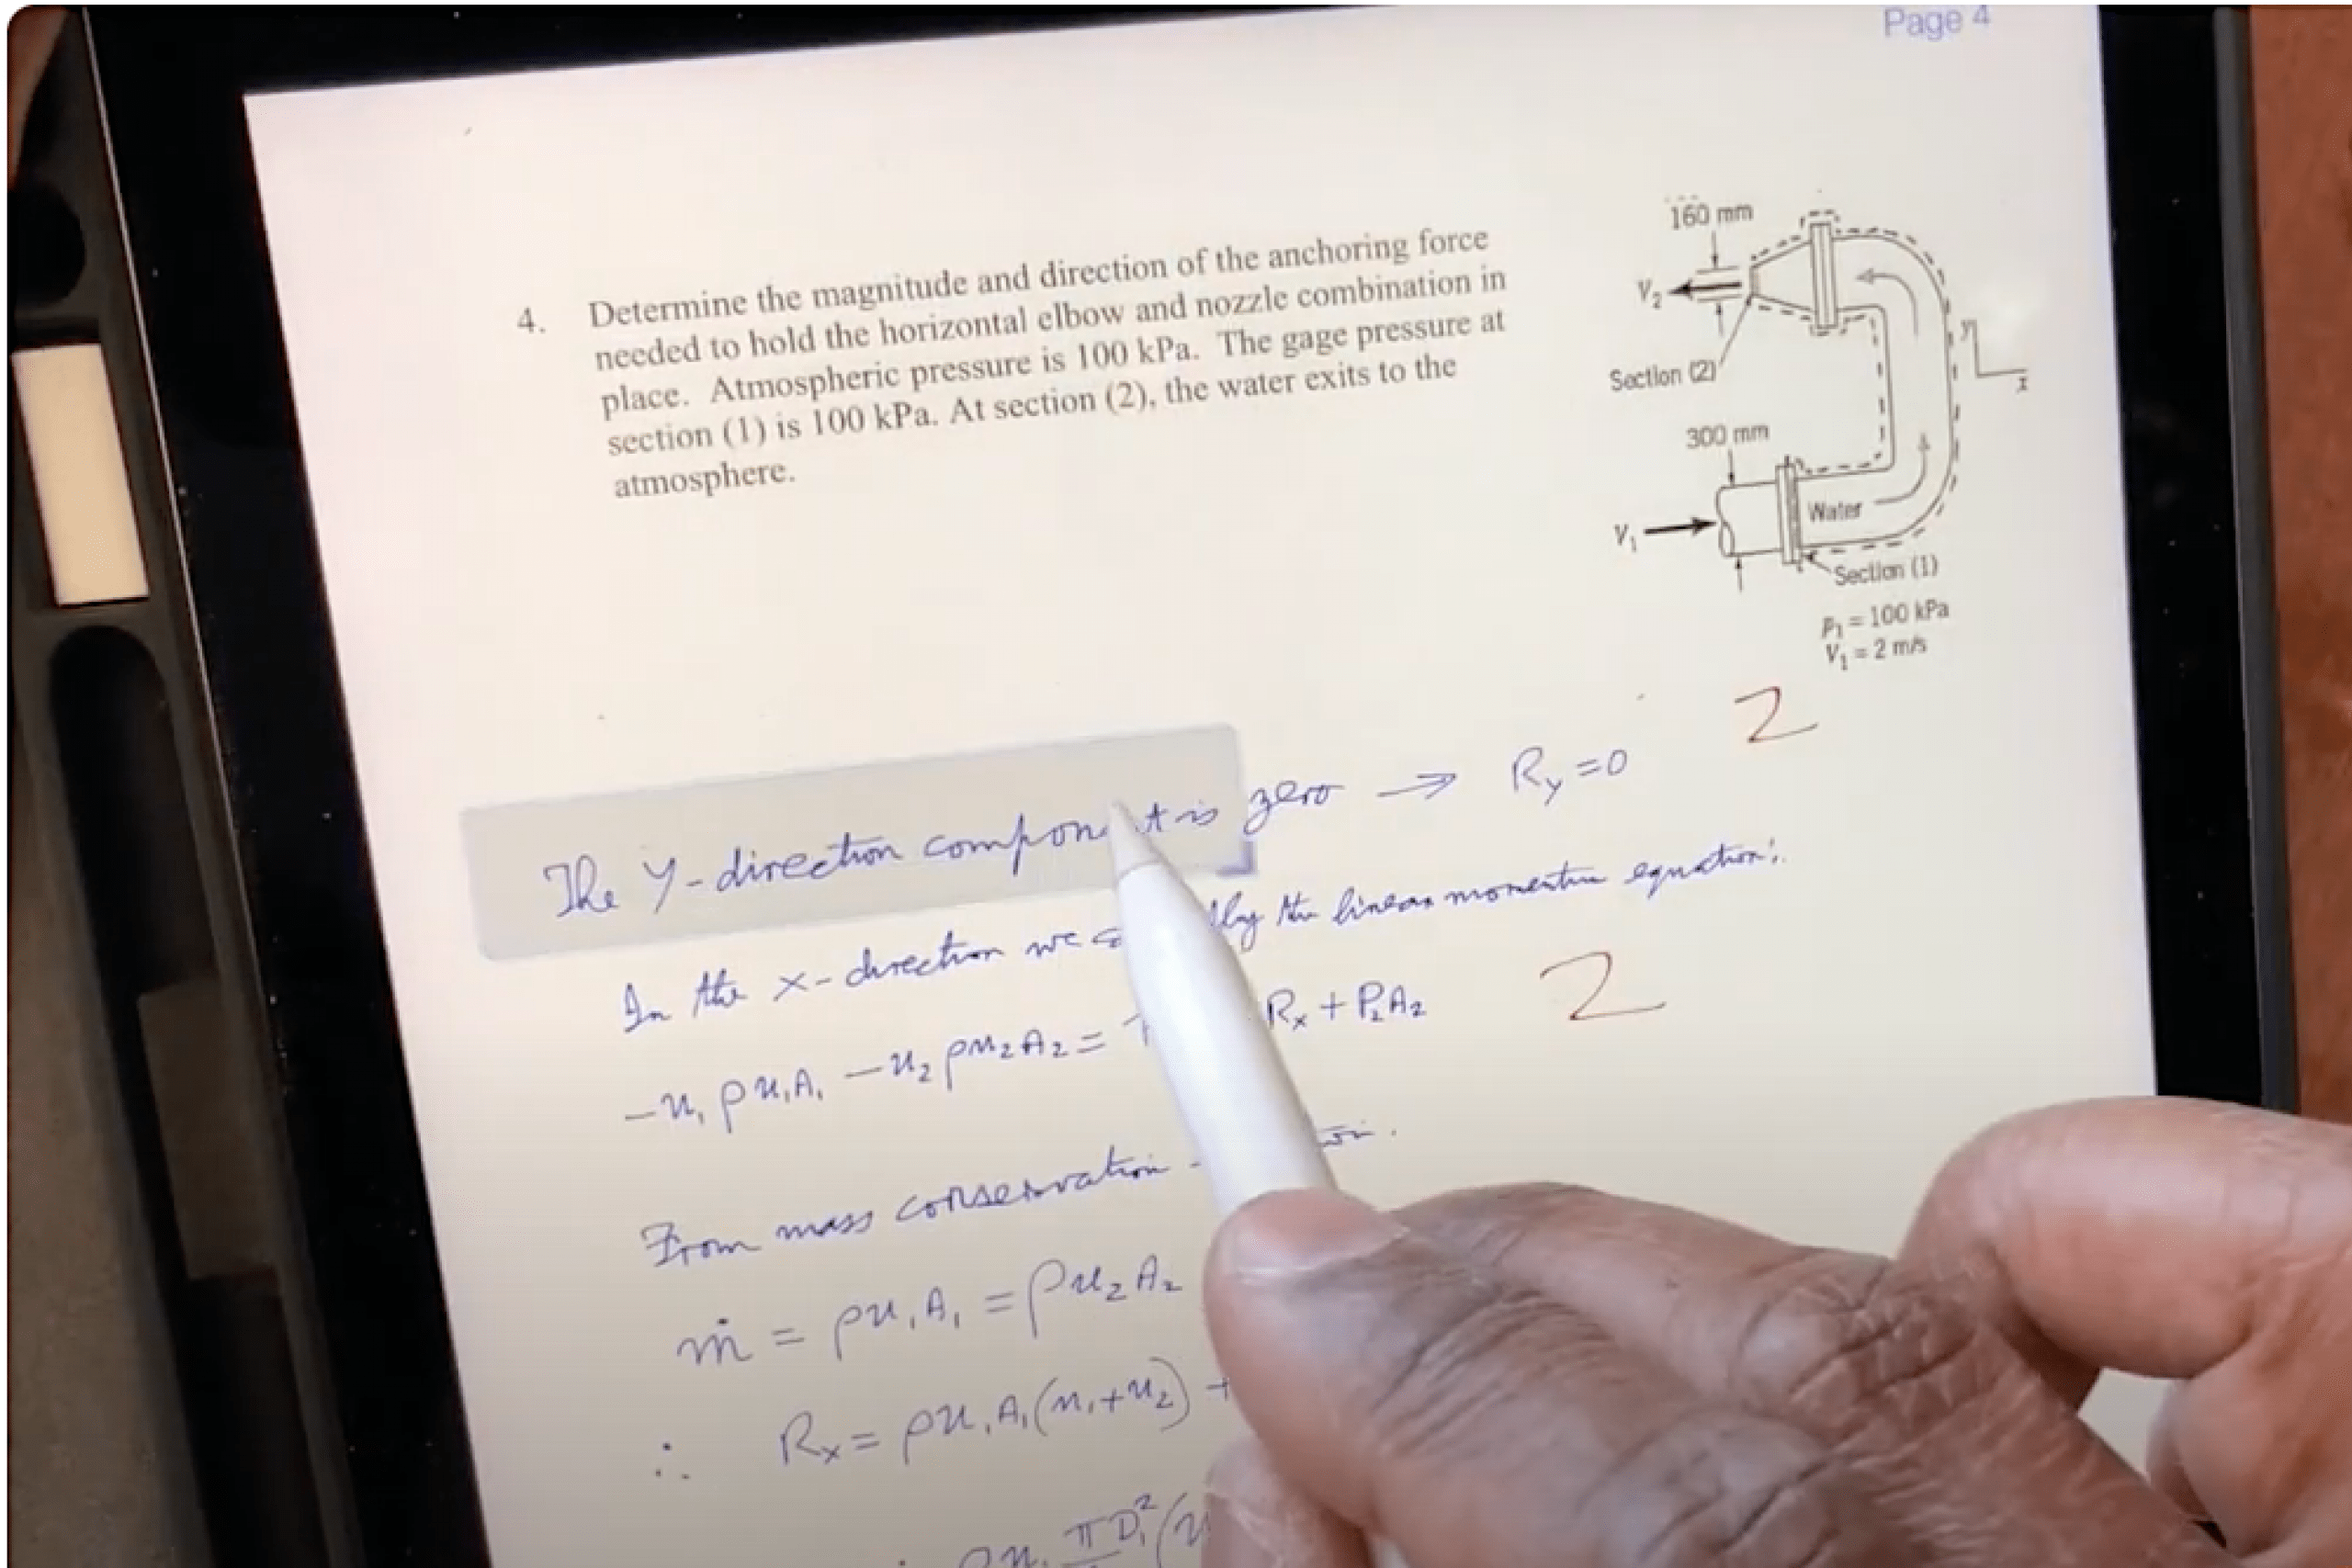 Page 4
4. Determine the magnitude and direction of the anchoring force
needed to hold the horizontal elbow and nozzle combination in
place. Atmospheric pressure is 100 kPa. The gage pressure at
section (1) is 100 kPa. At section (2), the water exits to the
atmosphere.
160 mm
V₂
y
x
Section (2)
300 mm
Water
V₁
Section (1)
P₁ = 100 kPa
V₁ = 2 m/s
2
The y-direction component is zero → Ry = 0
In the x-direction we the linear momentum equation:
-u₁ ρu₁A₁ - u₂ ρu₂A₂ = Rx + P₂A₂
2
From mass conservation
ṁ = ρu₁A₁ = ρu₂A₂
∴ Rx = ρu₁A₁(u₁+u₂) +
ρu₁ πD₁²